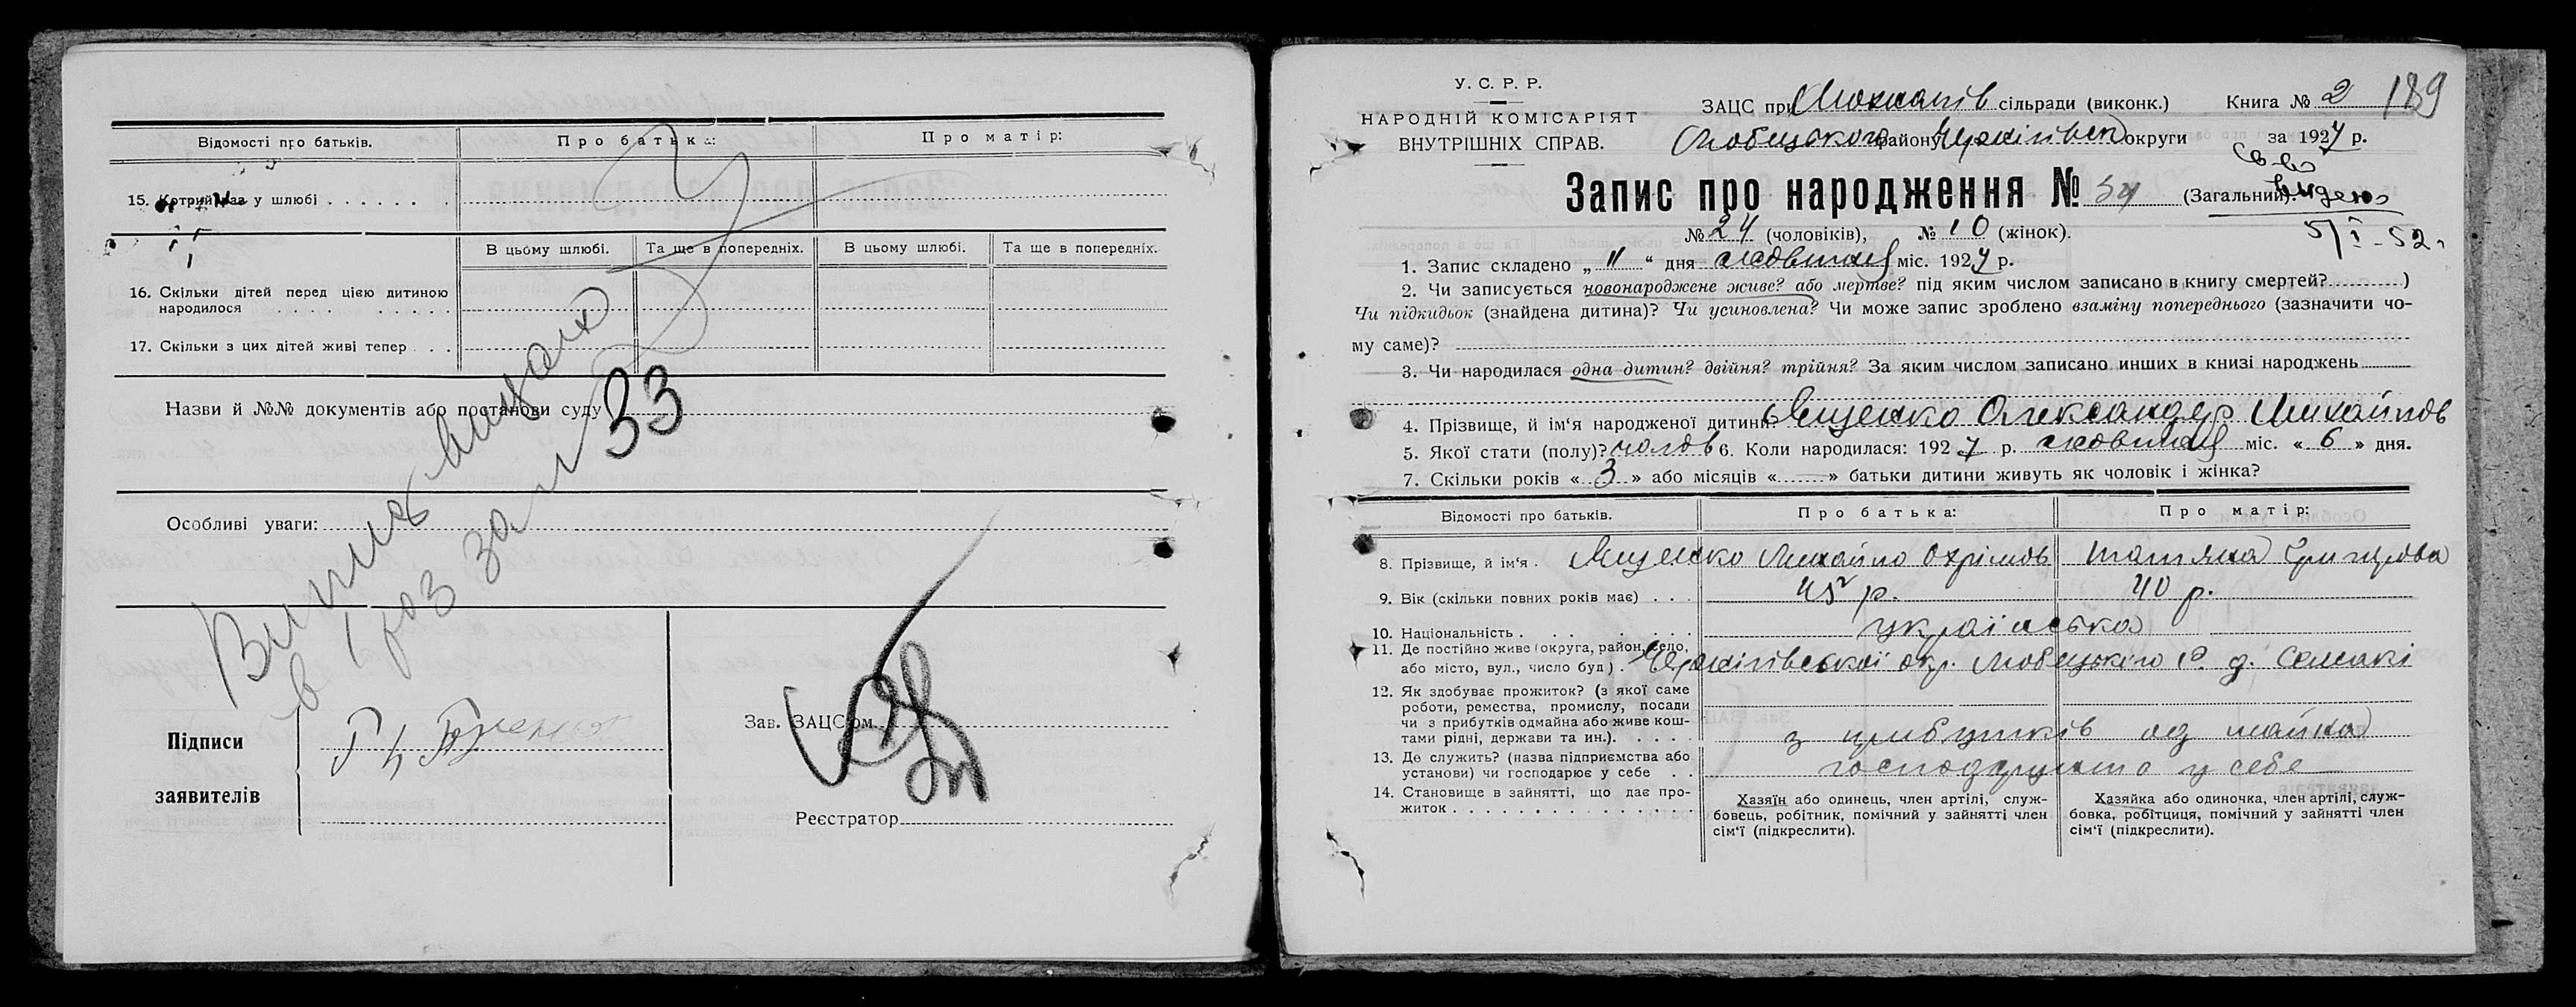 Відомості про батьків.
Про батька:
Про матір:
15. Котрий раз у шлюбі
В цьому шлюбі.
Та ще в попередніх.
В цьому шлюбі.
Та ще в попередніх.
16. Скільки дітей перед цією дитиною
народилося
17. Скільки з цих дітей живі тепер
Назви й №№ документів або постанови суду
33
Особливі уваги:
Підписи
заявителів
Зав. ЗАЦС'ом
Реєстратор
У. С. Р. Р.
НАРОДНІЙ КОМІСАРІЯТ
ВНУТРІШНІХ СПРАВ.
ЗАЦС при сільради (виконк.) Книга № 2 189
Любецького району Чернігівск округи за 1927 р.
Запис про народження № 34 (Загальний).
Св-во
видено
5/I-52
№ 24 (чоловіків), № 10 (жінок).
1. Запис складено „ 11 “ дня жовтня міс. 1927 р.
2. Чи записується новонароджене живе? або мертве? під яким числом записано в книгу смертей? )
Чи підкидьок (знайдена дитина)? Чи усиновлена? Чи може запис зроблено взаміну попереднього (зазначити чо-
му саме)?
3. Чи народилася одна дитин? двійня? трійня? За яким числом записано инших в книзі народжень
4. Прізвище, й ім'я народженої дитини? Ященко Олександр Михайлов
5. Якої стати (полу)? чолов 6. Коли народилася: 1927 р. жовтня міс. « 6 » дня.
7. Скільки років « 3 » або місяців « » батьки дитини живуть як чоловік і жінка?
Відомості про батьків.
Про батька:
Про матір:
8. Прізвище, й ім'я . Ященко Михайло Охрімов Татяна Григорова
9. Вік (скільки повних років має) . . . 45 р. 40 р.
10. Національність . українська
11. Де постійно живе (округа, район, село,
або місто, вул., число буд.) . Чернігівської окр. Любецького р. д. Семаки
12. Як здобуває прожиток? (з якої саме
роботи, ремества, промислу, посади
чи з прибутків одмайна або живе кош-
тами рідні, держави та ин.). з прибутків од майна
13. Де служить? (назва підприємства або
установи) чи господарює у себе . . у себе
14. Становище в зайнятті, що дає про-
житок
Хазяїн або одинець, член артілі, служ-
бовець, робітник, помічний у зайнятті член
сім'ї (підкреслити).
Хазяйка або одиночка, член артілі, служ-
бовка, робітциця, помічний у зайнятті член
сім'ї (підкреслити).